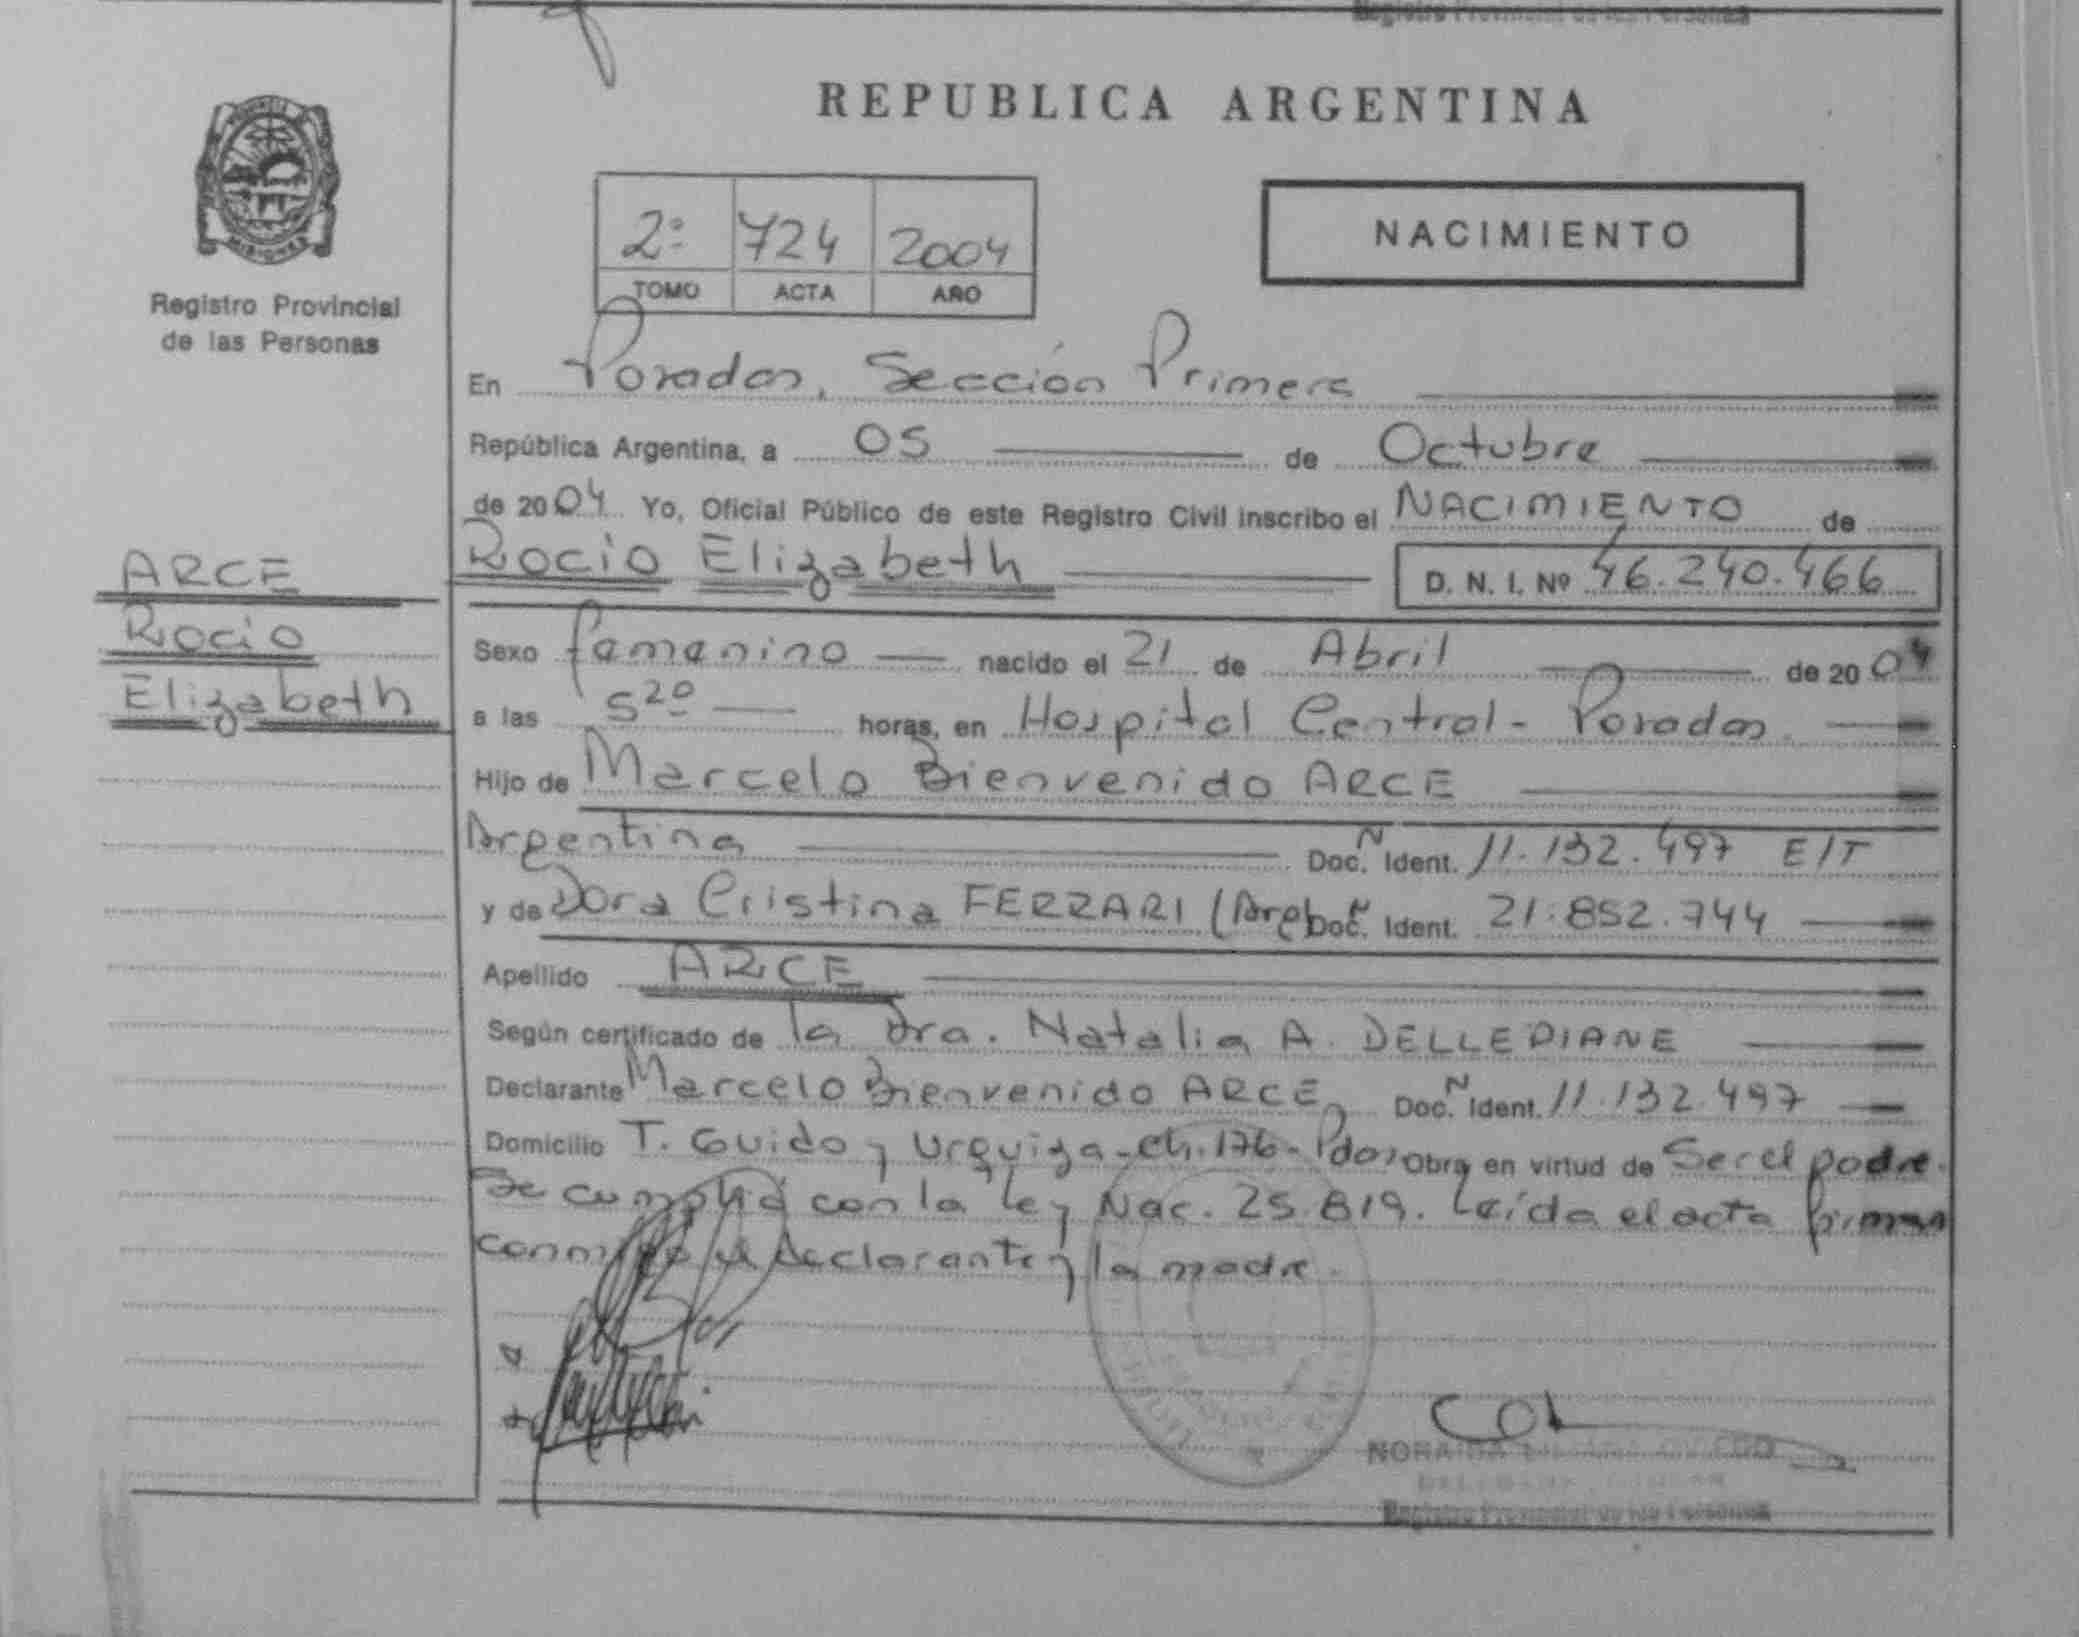 Registro Provincial de las Personas
REPUBLICA ARGENTINA
MISIONES
Registro Provincial
de las Personas
2º 724 2004
TOMO ACTA AÑO
NACIMIENTO
En Posadas, Sección Primera
República Argentina, a 05 de Octubre
de 2004 Yo, Oficial Público de este Registro Civil inscribo el NACIMIENTO de
ARCE
Rocio
Elizabeth
Rocio Elizabeth D. N. I. Nº 46.240.466
Sexo femenino nacido el 21 de Abril de 2004
a las 5 20 horas, en Hospital Central - Posadas
Hijo de Marcelo Bienvenido ARCE
Argentina Doc. N Ident. 11.132.497 E/T
y de Dora Cristina FERRARI (Arg) Doc. N Ident. 21.852.744
Apellido ARCE
Según certificado de la Dra. Natalia A. DELLEDIANE
Declarante Marcelo Bienvenido ARCE Doc. N Ident. 11.132.497
Domicilio T. Guido y Urquiza - Ch. 176 - Pdas Obra en virtud de Ser el padre.
Se cumplió con la Ley Nac. 25.819. Leída el acta firman
conmigo el declarante y la madre.
Registro Provincial de las Personas